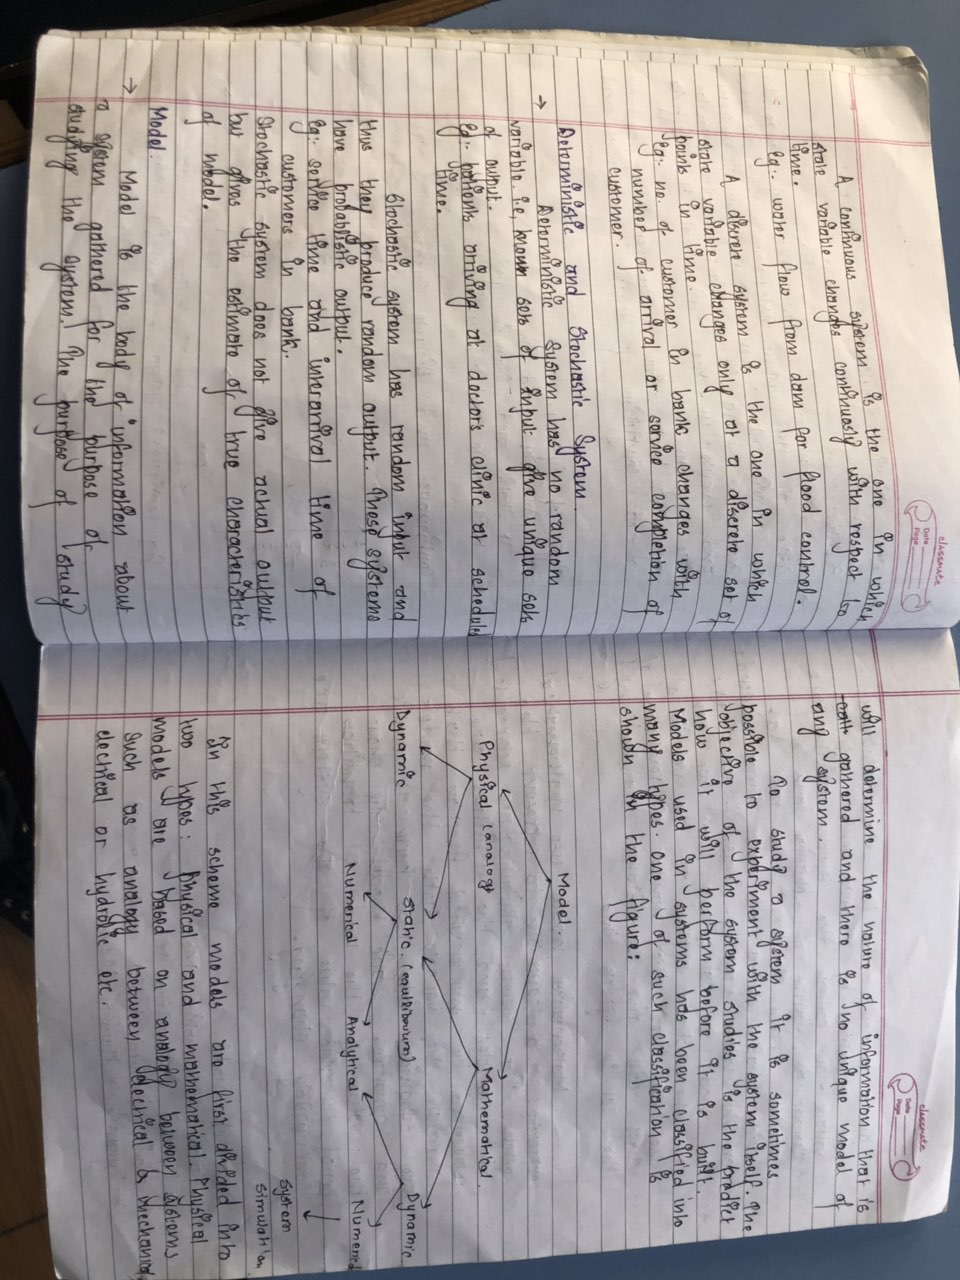 classmate
Date
Page
A continuous system is the one in which
state variable changes continuously with respect to
time.
eg:. water flow from dam for flood control.
A discrete system is the one in which
state variable changes only at a discrete set of
points in time.
eg:. no. of customer in bank changes with
number of arrival or service completion of
customer.
→ Deterministic and Stochastic System.
Deterministic system has no random
variable. i.e, known sets of input give unique sets
of output.
eg:. patients arriving at doctor's clinic at schedule
time.
Stochastic system has random input and
thus they produce random output. These systems
have probablistic output.
eg:. service time and interarrival time of
customers in bank.
Stochastic system does not give actual output
but gives the estimate of true characteristics
of model.
→ Model.
Model is the body of information about
a system gathered for the purpose of
studying the system. The purpose of study
classmate
Date
Page
will determine the nature of information that is
gathered and there is no unique model of
any system.
To study a system it is sometimes
possible to experiment with the system itself. The
objective of the system studies is the predict
how it will perform before it is built.
Models used in systems has been classified into
many types. One of such classification is
shown in the figure:
Model.
Physical (analog) Mathematical.
Dynamic Static. Dynamic
Numerical Analytical Numerical
System
simulation
In this scheme models are first divided into
two types: Physical and mathematical. Physical
models are based on analogy between systems
such as analogy between electrical & mechanical
electrical or hydrolic etc.